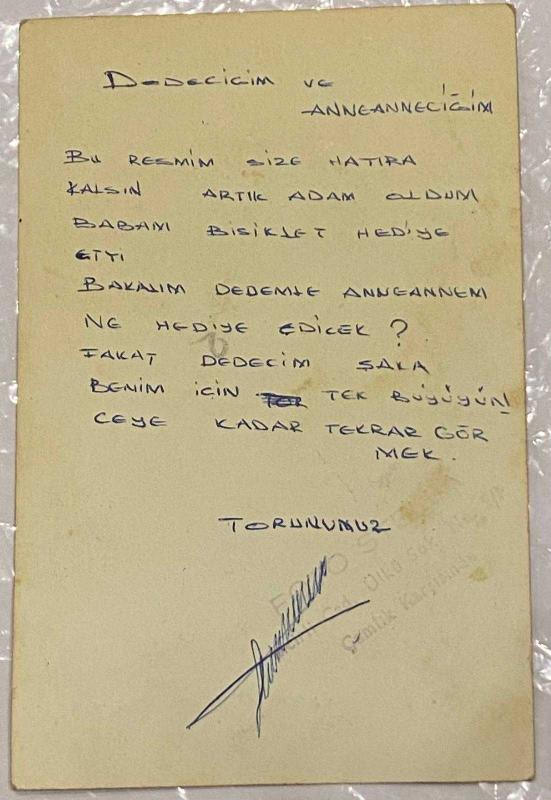 DEDECİCİM VE
ANNEANNECİĞİM
BU RESMİM SİZE HATIRA
KALSIN ARTIK ADAM OLDUM
BABAM BİSİKLET HEDİYE
ETTİ
BAKALIM DEDEMLE ANNEANNEM
NE HEDİYE EDİCEK ?
FAKAT DEDECİM ŞAKA
BENİM İÇİN TEK BÜYÜĞÜN
CEYE KADAR TEKRAR GÖR
MEK.
TORUNUNUZ
FOTO
Cad. Ülkü Sok.
Gemlik Karşısında